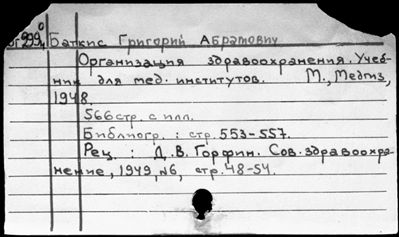 Баткис Григорий Абрамович
Организация здравоохранения. Учеб-
ник для мед. институтов. М., Медгиз,
1948.
566 стр. с илл.
Библиогр. : стр. 553-557.
Рец. : Д. В. Горфин. Сов. здравоохра-
нение, 1949, №6, стр. 48-54.